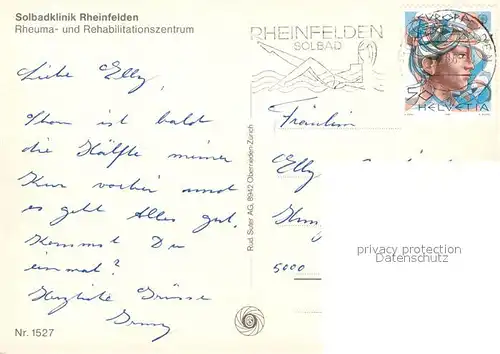 Solbadklinik Rheinfelden
Rheuma- und Rehabilitationszentrum
RHEINFELDEN
SOLBAD
EUROPA
50
HELVETIA
Liebe Elly,
Schon ist bald
die Hälfte meiner
Kur vorbei
es geht Alles gut.
Kommst Du
ein mal?
Herzliche Grüsse
Fräulein
Elly
5000
Rud. Suter AG, 8942 Oberrieden-Zürich
privacy protection
Datenschutz
Nr. 1527